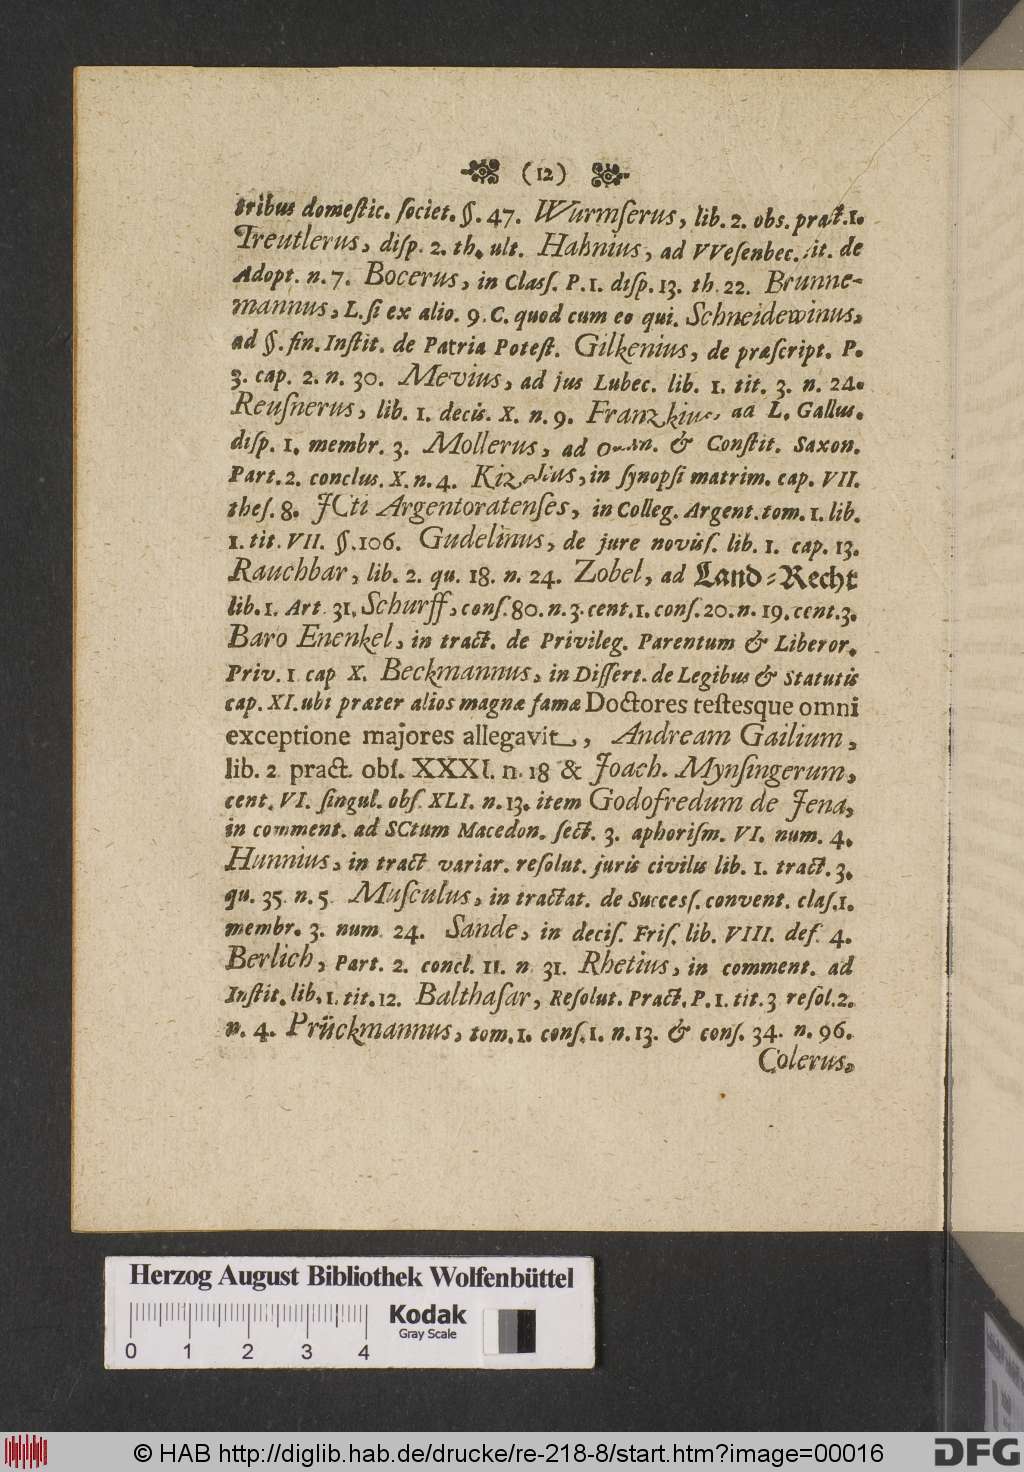 (12)
tribus domestic. ſociet. §. 47. Wurmſerus, lib. 2. obs. pract. 1.
Treutlerus, diſp. 2. th. ult. Hahnius, ad VVeſenbec. tit. de
Adopt. n. 7. Bocerus, in Claſſ. P. 1. diſp. 13. th. 22. Brunne-
mannus, L. ſi ex alio. 9. C. quod cum eo qui. Schneidewinus,
ad §. fin. Inſtit. de Patria Poteſt. Gilkenius, de præſcript. P.
3. cap. 2. n. 30. Mevius, ad jus Lubec. lib. 1. tit. 3. n. 24.
Reuſnerus, lib. 1. decis. X. n. 9. Franzkius, ad L. Gallus.
diſp. 1. membr. 3. Mollerus, ad & Conſtit. Saxon.
Part. 2. conclus. X. n. 4. in ſynopſi matrim. cap. VII.
theſ. 8. JCti Argentoratenſes, in Colleg. Argent. tom. 1. lib.
1. tit. VII. §. 106. Gudelinus, de jure noviſſ. lib. 1. cap. 13.
Rauchbar, lib. 2. qu. 18. n. 24. Zobel, ad Land=Recht
lib. 1. Art. 31. Schurff, conſ. 80. n. 3. cent. 1. conſ. 20. n. 19. cent. 3.
Baro Enenkel, in tract. de Privileg. Parentum & Liberor.
Priv. 1 cap X. Beckmannus, in Diſſert. de Legibus & Statutis
cap. XI. ubi præter alios magnæ famæ Doctores teſtesque omni
exceptione majores allegavit, Andream Gailium,
lib. 2 pract. obſ. XXXI. n. 18 & Joach. Mynſingerum,
cent. VI. ſingul. obſ XLI. n. 13. item Godofredum de Jena,
in comment. ad SCtum Macedon. ſect. 3. aphoriſm. VI. num. 4.
Hunnius, in tract variar. reſolut. juris civilis lib. 1. tract. 3.
qu. 35 n. 5. Muſculus, in tractat. de Succeſſ. convent. claſ. 1.
membr. 3. num 24. Sande, in deciſ. Friſ. lib. VIII. def. 4.
Berlich, Part. 2. concl. 11. n 31. Rhetius, in comment. ad
Inſtit. lib. 1. tit. 12. Balthaſar, Reſolut. Pract. P. 1. tit. 3 reſol. 2.
n. 4. Prückmannus, tom. 1. conſ. 1. n. 13. & conſ. 34. n. 96.
Colerus,
Herzog August Bibliothek Wolfenbüttel
0 1 2 3 4
Kodak
Gray Scale
© HAB http://diglib.hab.de/drucke/re-218-8/start.htm?image=00016
DFG